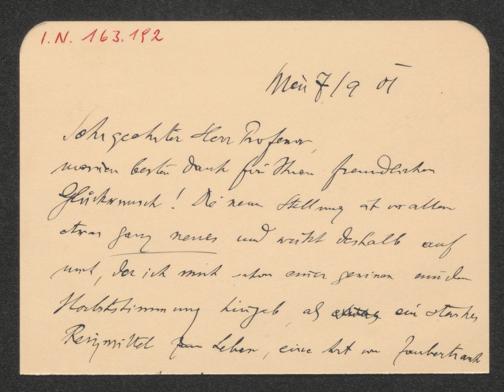 I.N. 163.192
Wien 7/9 01
Sehr geehrter Herr Professor,
meinen besten Dank für Ihren freundlichen
Glückwunsch! Die neue Stellung ist vor allem
etwas ganz neues und wirkt deshalb auf
mich, der ich mich schon einer gewissen müden
Herbststimmung hingab, als ein starkes
Reizmittel zum Leben, eine Art von Zaubertrank